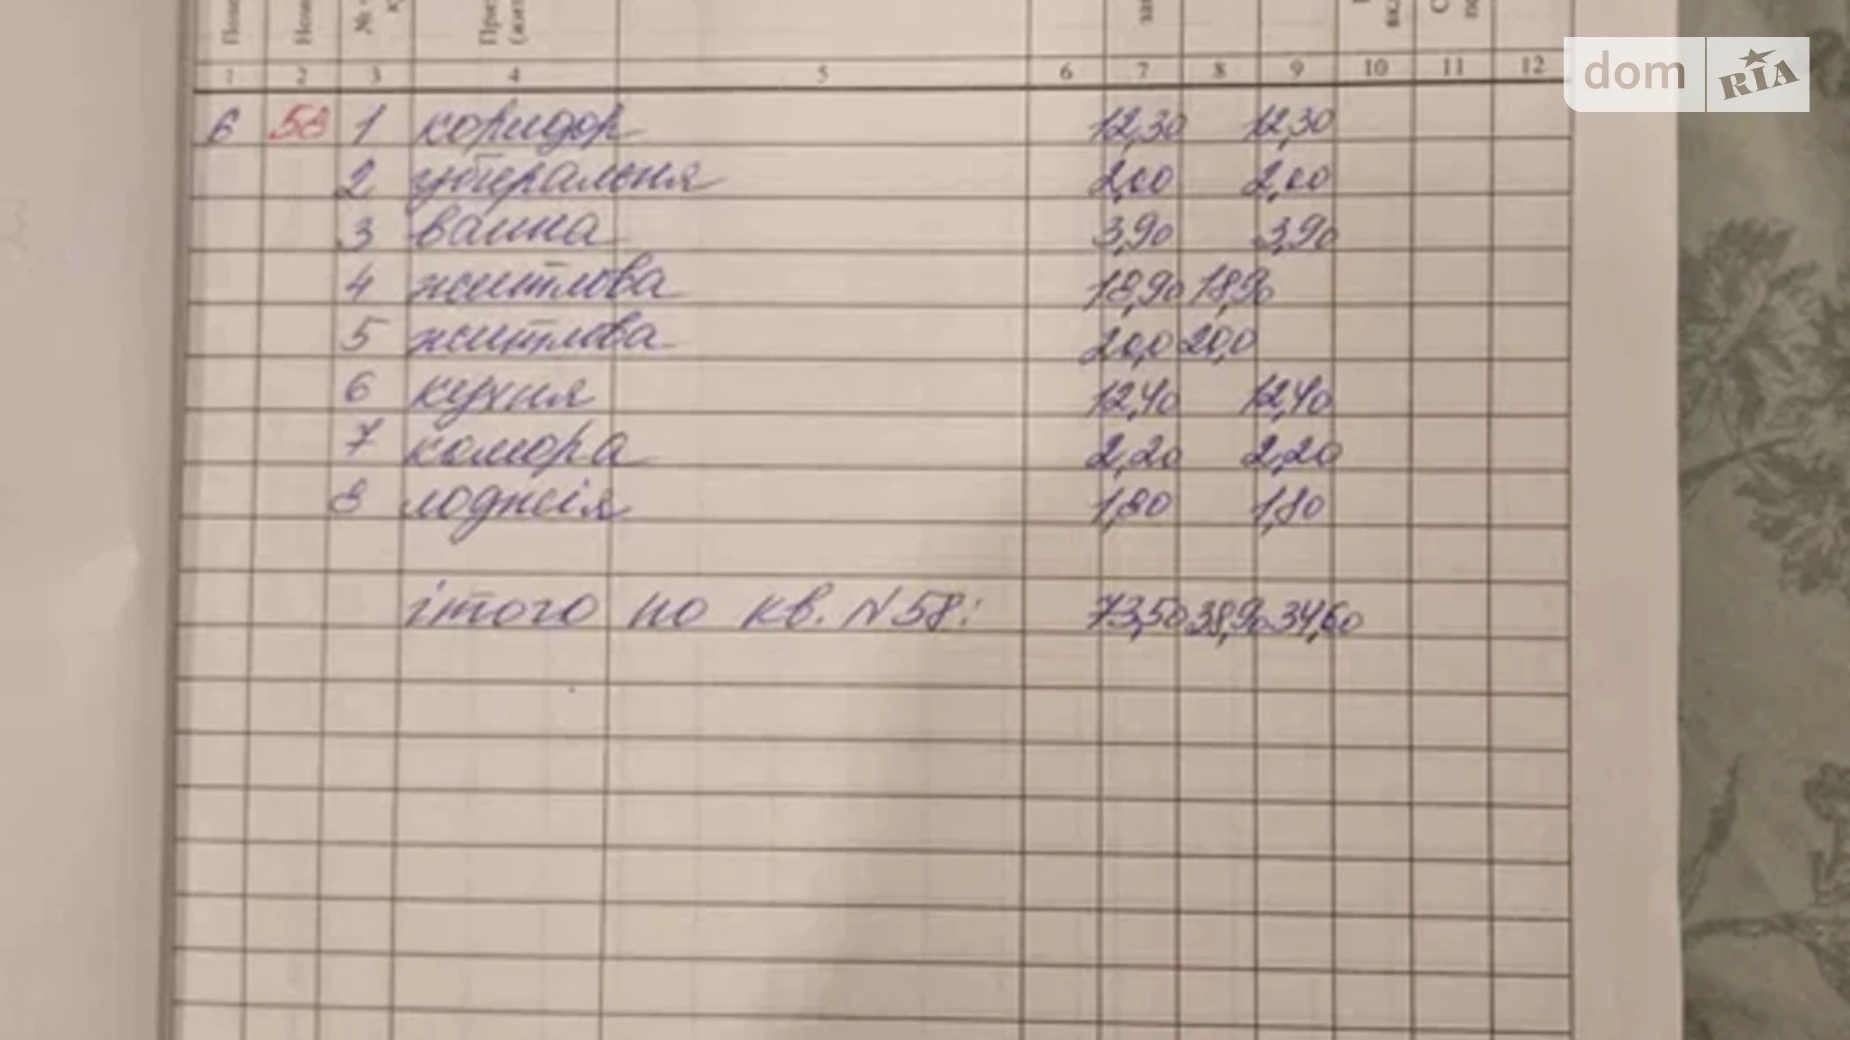 dom RIA
1 2 3 4 5 6 7 8 9 10 11 12
6 58 1 коридор 12,30 12,30
2 убиральня 2,00 2,00
3 ванна 3,90 3,90
4 житлова 18,90 18,90
5 житлова 20,0 20,0
6 кухня 12,40 12,40
7 комора 2,20 2,20
8 лоджія 1,80 1,80
ітого по кв. N58: 73,50 38,90 34,60